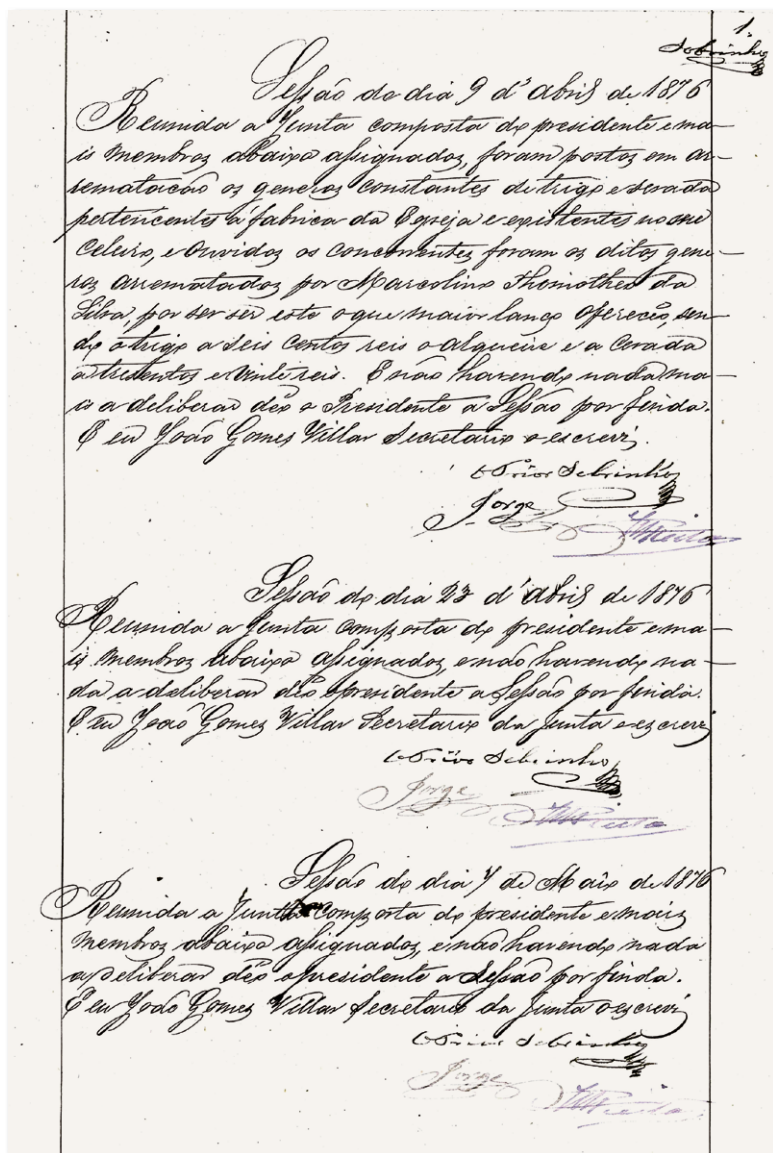 1.
Sobrinho
Sessão do dia 9 d'Abril de 1876
Reunida a Junta composta do presidente e ma-
is membros abaixo assignados, foram postos em ar-
rematacão os generos constantes de trigo e sevada
pertencentes á fabrica da Egreja e existentes no
Celeiro, e ouvidos os concorrentes foram os ditos gene-
ros arrematados por Marcolino Thimotheo da
Silva, por ser ser este o que maior lanço ofereceo, sen-
do o trigo a seis centos reis o alqueire e a Cevada
a tresentos e vinte reis. E não havendo nada ma-
is a deliberar deo o Presidente a Sessão por finda.
E eu João Gomes Villar Secretario o escrevi.
O Prior Sobrinho
Jorge
Sessão do dia 23 d'Abril de 1876
Reunida a Junta composta do presidente e ma-
is membros abaixo assignados, e não havendo na-
da a deliberar deo o presidente a Sessão por finda.
E eu João Gomes Villar Secretario da Junta o escrevi
O Prior Sobrinho
Jorge
Sessão do dia 7 de Maio de 1876
Reunida a Junta composta do presidente e mais
membros abaixo assignados, e não havendo nada
a deliberar deo o presidente a Sessão por finda.
E eu João Gomes Villar Secretario da Junta o escrevi
O Prior Sobrinho
Jorge